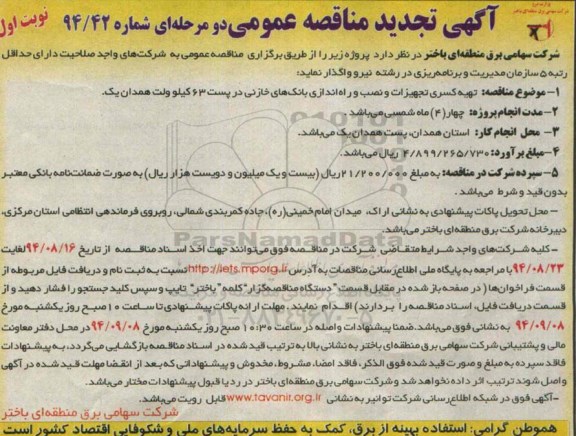 آگهی تجدید مناقصه عمومی دو مرحله‌ای شماره ۹۴/۴۲
نوبت اول
شرکت سهامی برق منطقه‌ای باختر در نظر دارد پروژه زیر را از طریق برگزاری مناقصه عمومی به شرکت‌های واجد صلاحیت دارای حداقل
رتبه ۵ سازمان مدیریت و برنامه‌ریزی در رشته نیرو واگذار نماید:
۱- موضوع مناقصه: تهیه کسری تجهیزات و نصب و راه اندازی بانک‌های خازنی در پست ۶۳ کیلو ولت همدان یک.
۲- مدت انجام پروژه: چهار (۴) ماه شمسی می‌باشد.
۳- محل انجام کار: استان همدان، پست همدان یک می‌باشد.
۴- مبلغ برآورد: ۴/۸۹۹/۲۶۵/۷۳۰ ریال می‌باشد.
۵- سپرده شرکت در مناقصه: به مبلغ ۲۱/۲۰۰/۰۰۰ ریال (بیست و یک میلیون و دویست هزار ریال) به صورت ضمانت‌نامه بانکی معتبر
بدون قید و شرط می‌باشد.
- محل تحویل پاکات پیشنهادی به نشانی اراک، میدان امام خمینی (ره)، جاده کمربندی شمالی، روبروی فرماندهی انتظامی استان مرکزی،
دبیرخانه شرکت برق منطقه‌ای باختر می‌باشد.
- کلیه شرکت‌های واجد شرایط متقاضی شرکت در مناقصه فوق می‌توانند جهت اخذ اسناد مناقصه از تاریخ ۹۴/۰۸/۱۶ لغایت
۹۴/۰۸/۲۳ با مراجعه به پایگاه ملی اطلاع‌رسانی مناقصات به آدرس http://iets.mporg.ir نسبت به ثبت نام و دریافت فایل مربوطه از
قسمت فراخوان‌ها (در صفحه باز شده در مقابل قسمت "دستگاه مناقصه‌گزار" کلمه "باختر" تایپ و سپس کلید جستجو را فشار دهید و از
قسمت دریافت فایل، اسناد مناقصه را بردارند) اقدام نمایند. مهلت ارائه پاکات پیشنهادی تا ساعت ۱۰ صبح روز یکشنبه مورخ
۹۴/۰۹/۰۸ به نشانی فوق می‌باشد. ضمنا پیشنهادات واصله در ساعت ۱۰:۳۰ صبح روز یکشنبه مورخ ۹۴/۰۹/۰۸ در محل دفتر معاونت
مالی و پشتیبانی شرکت سهامی برق منطقه‌ای باختر به نشانی بالا به ترتیب قید شده در اسناد مناقصه بازگشایی می‌گردد، به پیشنهادات
فاقد سپرده به مبلغ و صورت قید شده فوق الذکر، فاقد امضا، مشروط، مخدوش و پیشنهاداتی که بعد از انقضا مهلت قید شده در آگهی
واصل شوند ترتیب اثر داده نخواهد شد و شرکت سهامی برق منطقه‌ای باختر در رد یا قبول پیشنهادات مختار می‌باشد.
- آگهی فوق در شبکه اطلاع‌رسانی شرکت توانیر به نشانی www.tavanir.org.ir قابل رویت می‌باشد.
شرکت سهامی برق منطقه‌ای باختر
هموطن گرامی: استفاده بهینه از برق، کمک به حفظ سرمایه‌های ملی و شکوفایی اقتصاد کشور است
ParsNamadData